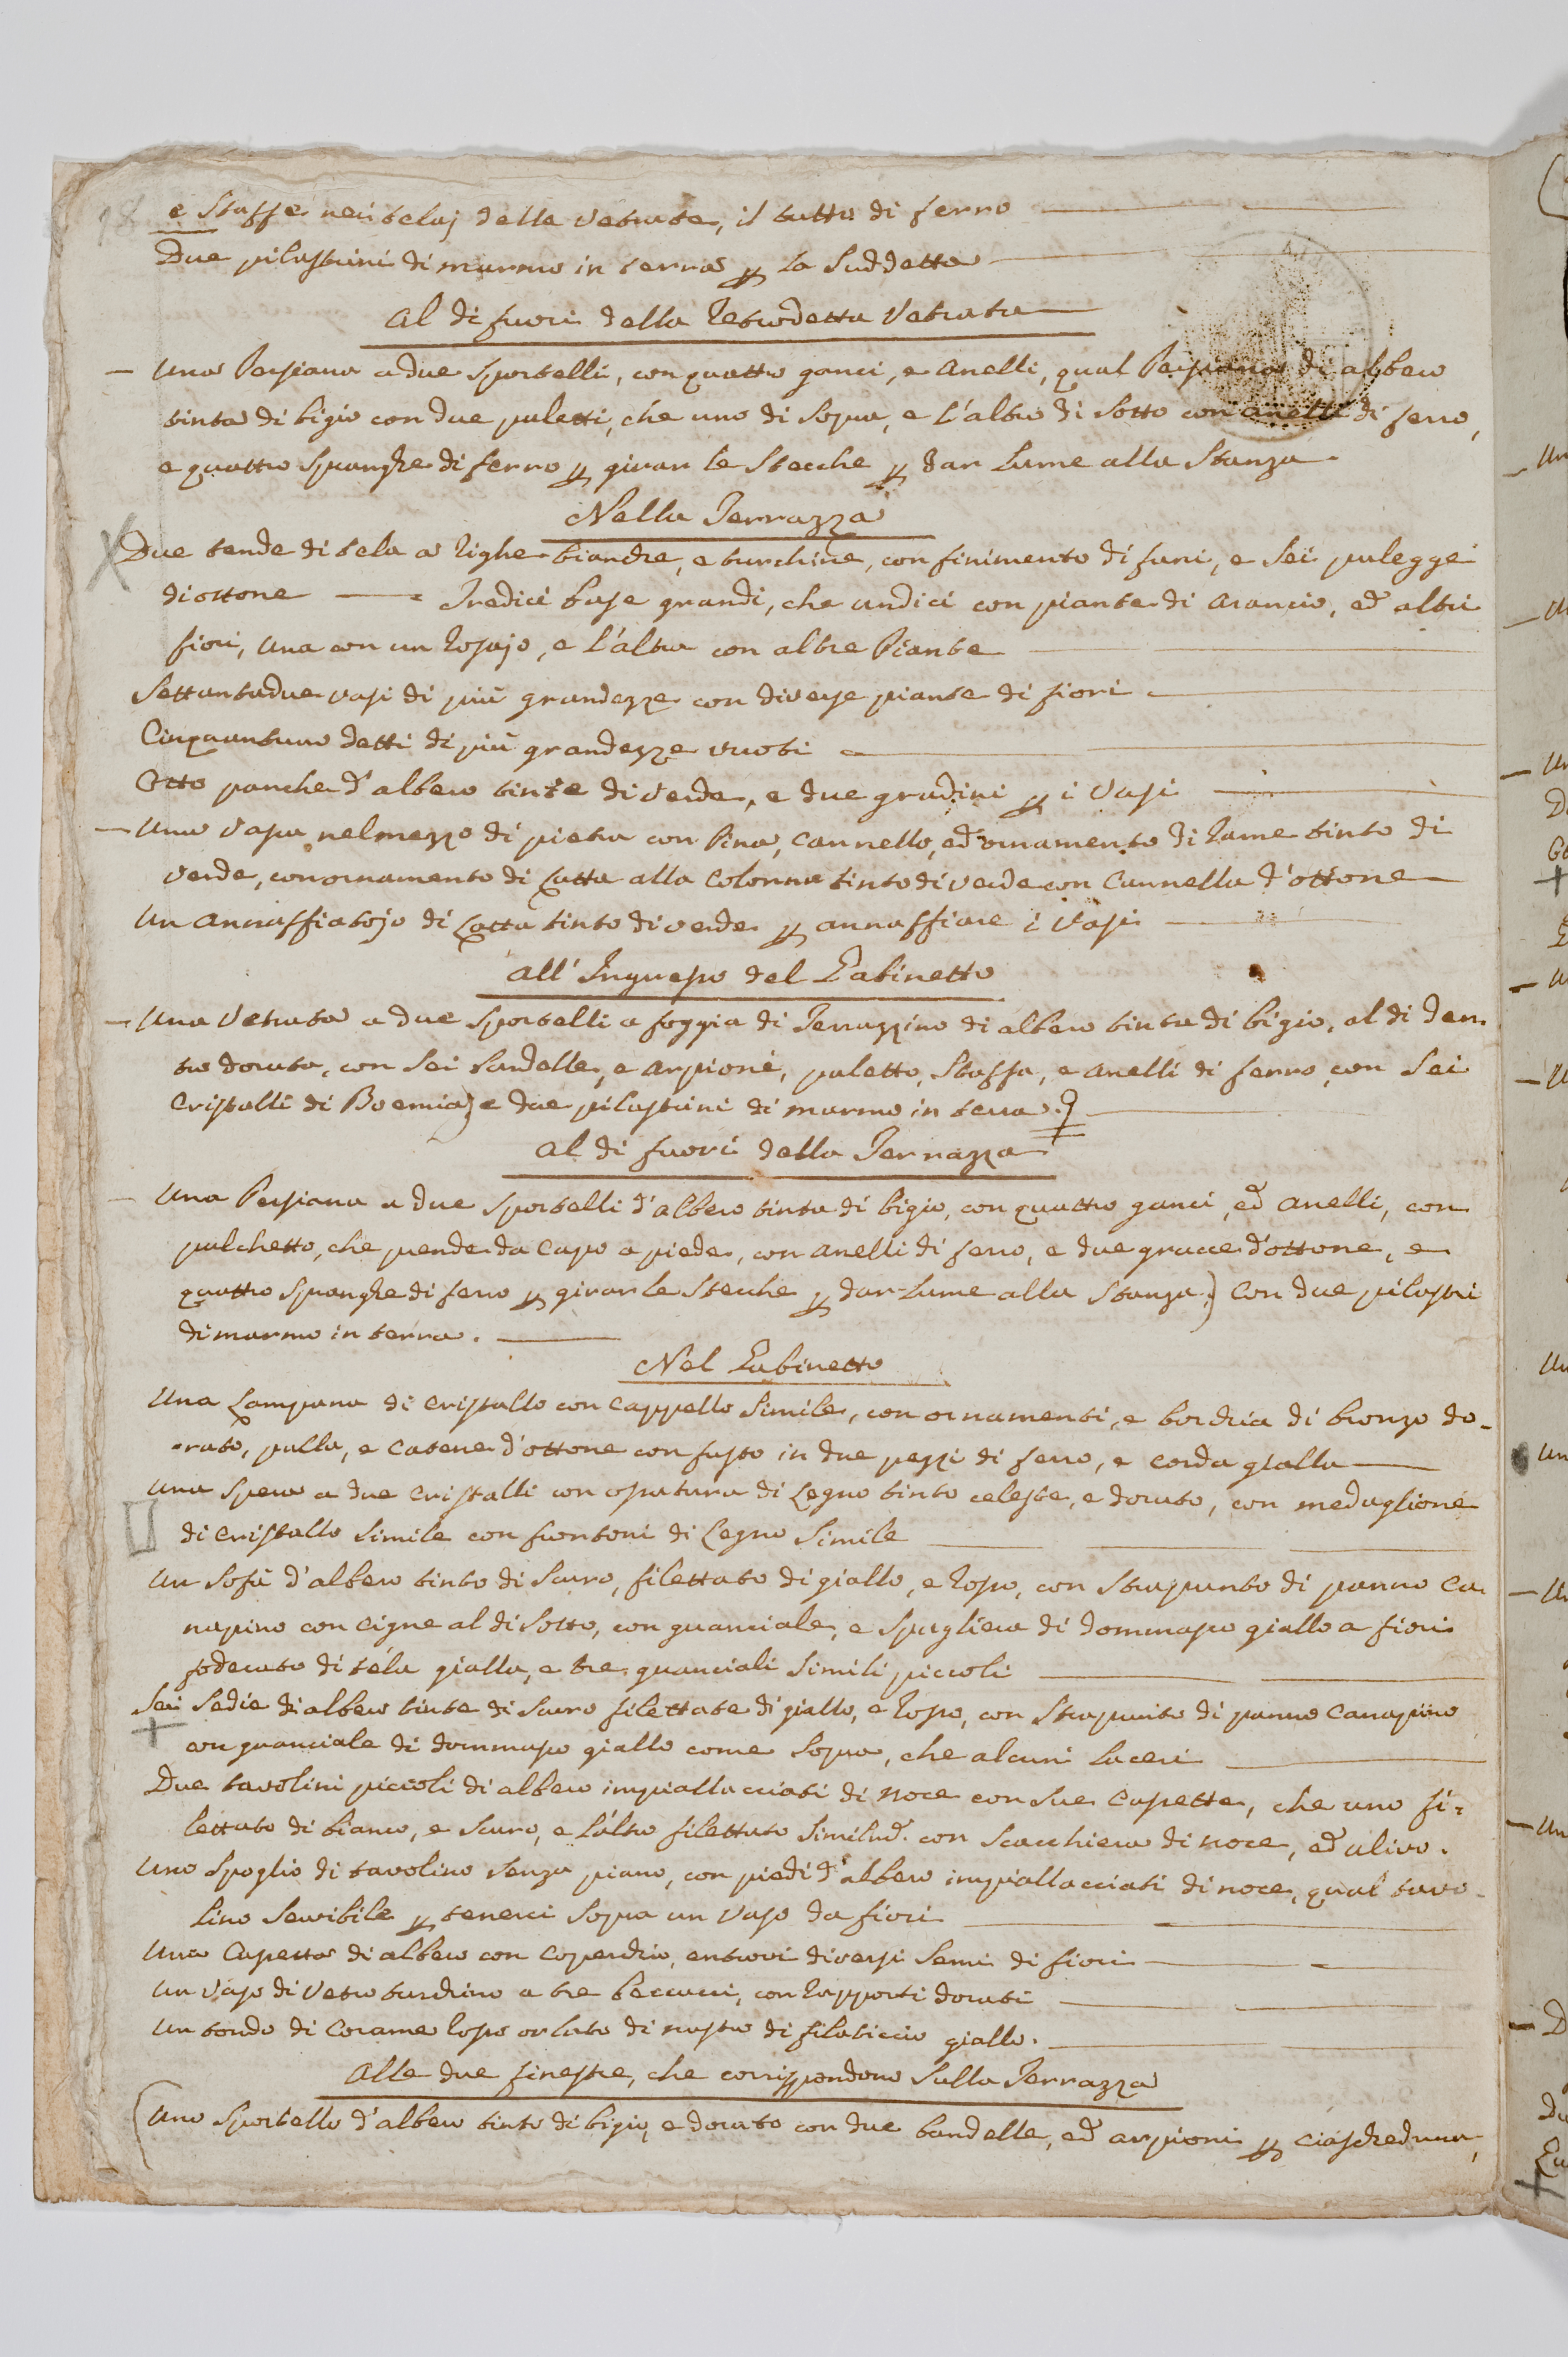 18
e Staffe nei telaj della Vetrata, il tutto di ferro
Due pilastrini di marmo in terra p la Suddetta
Al di fuori della Retrodetta Vetrata
Una Persiana a due Sportelli, con quattro ganci, e Anelli, qual Persiana di albero
tinta di bigio con due paletti, che uno di Sopra, e l'altro di Sotto con anelli di ferro,
e quattro Spranghe di ferro p girar le Stecche p dar Lume alla Stanza.
Nella Terrazza
Due tende di tela a Righe bianche, e turchine, con finimento di funi, e Sei pulegge
di ottone Tredici base grandi, che undici con piante di Arancio, ed altri
fiori, una con un Rosajo, e l'altra con altre Piante
Settantadue vasi di più grandezze con diverse piante di fiori
Cinquantuno detti di più grandezze vuoti
Otto panche d'albero tinte di verde, e due gradini p i Vasi
Una Vasca nel mezzo di pietra con Pina, Cannello, ed ornamento di Rame tinto di
verde, con ornamento di Latta alla Colonna tinto di verde con Cannella d'ottone
Un Annaffiatojo di Latta tinto di verde p annaffiare i Vasi
All'Ingresso del Gabinetto
Una Vetrata a due Sportelli a foggia di Terrazzino di albero tinta di bigio, al di den.
tro dorata, con Sei bandelle, e Arpioni, paletto, Staffa, e Anelli di ferro, con Sei
Cristalli di Boemia) e due pilastrini di marmo in terra.
Al di fuori della Terrazza
Una Persiana a due Sportelli d'albero tinta di bigio, con quattro ganci, ed Anelli, con
palchetto, che prende da Capo a piede, con anelli di ferro, e due grucce d'ottone, e
quattro Spranghe di ferro p girar le Stecche p dar Lume alla Stanza;) Con due pilastri
di marmo in terra.
Nel Gabinetto
Una Lampana di Cristallo con Cappello Simile, con ornamenti, e borchia di bronzo do-
rato, palla, e Catene d'ottone con fusto in due pezzi di ferro, e corda gialla
Una Spera a due Cristalli con ornatura di Legno tinto celeste, e dorato, con medaglione
di Cristallo Simile con frontoni di Legno Simile
Un Sofà d'albero tinto di Scuro, filettato di giallo, e Rosso, con Strapunto di panno Ca-
napino con Cigne al di Sotto, con guanciale, e Spagliera di dommasco giallo a fiori
foderato di tela gialla, e tre guanciali Simili piccoli
Sei Sedie di albero tinte di Scuro filettate di giallo, e Rosso, con Strapunto di panno Canapino
con guanciale di dommasco giallo come Sopra, che alcuni Laceri
Due tavolini piccoli di albero impiallacciati di noce con Sue Casette, che uno fi=
lettato di bianco, e Scuro, e l'altro filettato Similmd. con Scacchiera di noce, ed ulivo.
Uno Spoglio di tavolino Senza piano, con piedi d'albero impiallacciati di noce, qual tavo-
lino Servibile p tenerci Sopra un Vaso da fiori
Una Casetta di albero con Coperchio, entrovi diversi Semi di fiori
Un Vaso di Vetro turchino a tre beccucci, con Rapporti dorati
Un tondo di Corame Rosso orlato di nastro di filaticcio giallo.
Alle due finestre, che corrispondono Sulla Terrazza
Uno Sportello d'albero tinto di bigio, e dorato con due bandelle, ed arpioni p ciascheduna,